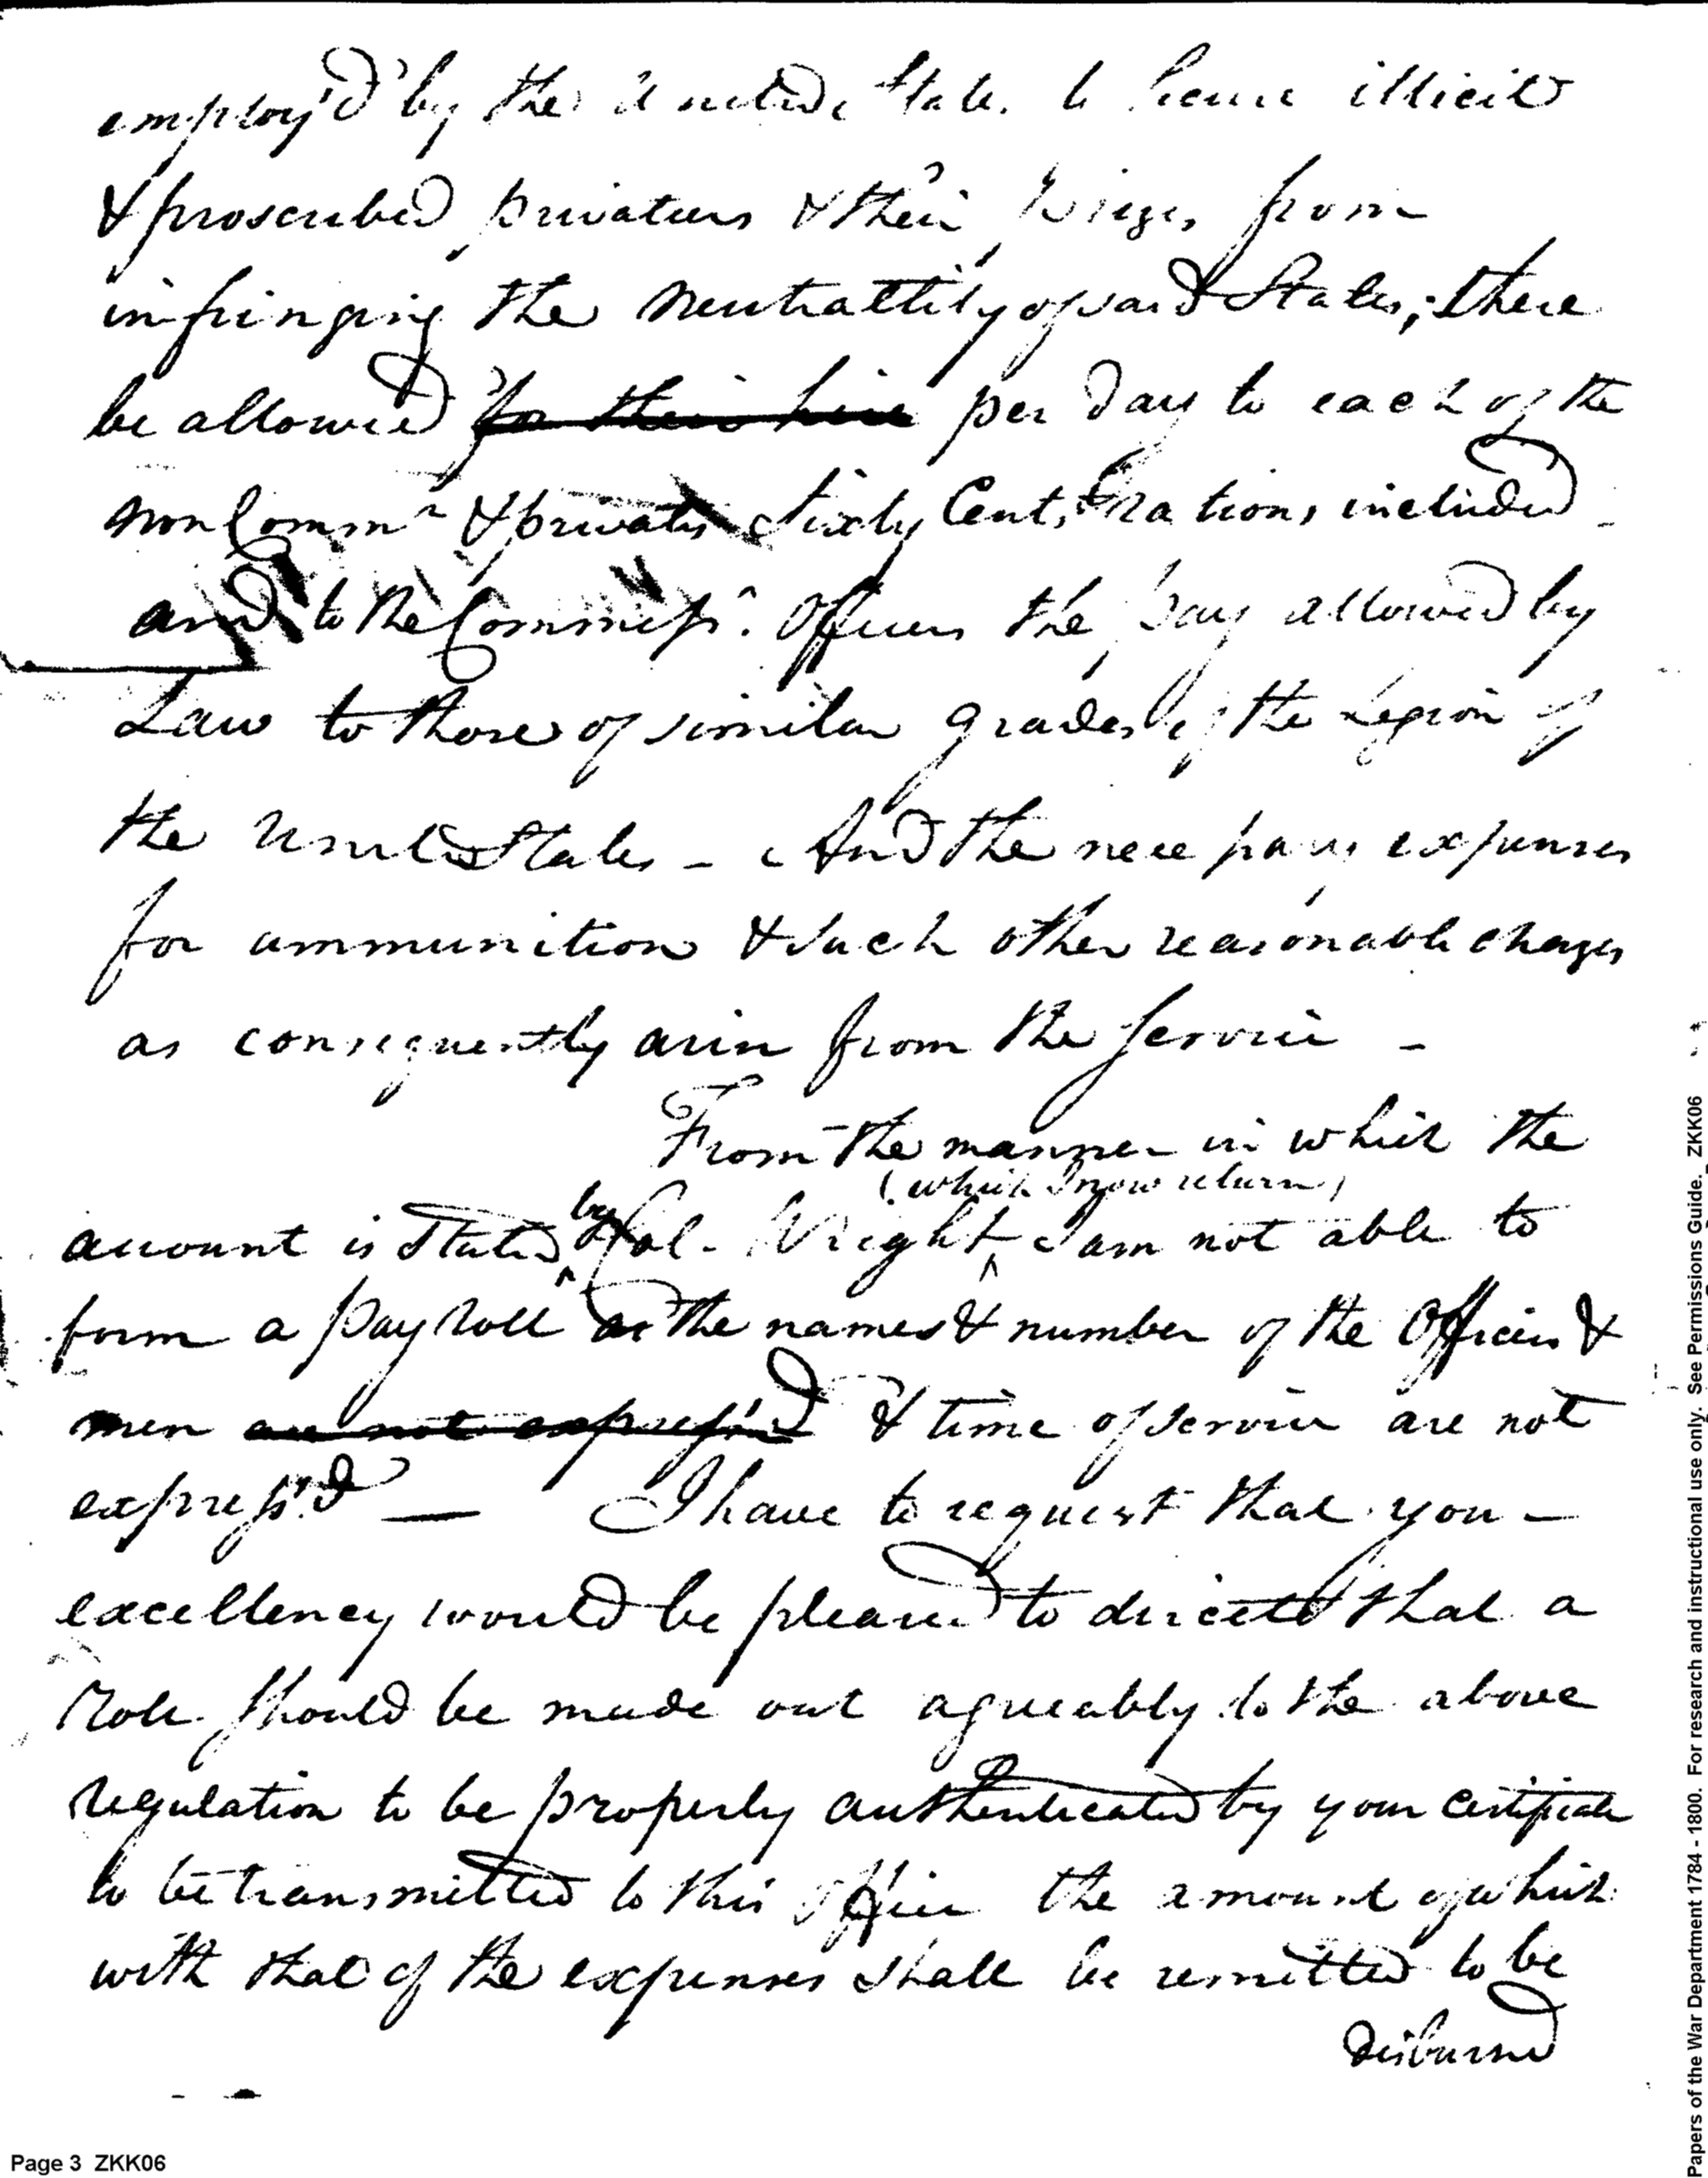 employ'd by the United States to secure illicit
& proscribed privateers & their prizes from
infringing the neutrallity of said States; there
be allowed for their hire per day to each of the
non Commn & privates Sixty Cents rations included -
and to the Commiss'd Officers the pay allowed by
Law to those of similar grades of the Legion of
the United States - And the necessary expenses
for ammunition & such other reasonable charges
as consequently arise from the service -
From the manner in which the
(which I now return)
account is stated by Col. Wright, I am not able to
form a pay roll as the names & number of the Officers &
men are not express'd & time of service are not
express'd — I have to request that your
excellency would be pleased to direct that a
Roll should be made out agreeably to the above
regulation to be properly authenticated by your certificate
to be transmitted to this office the amount of which
with that of the expenses shall be remitted to be
disbursed
Page 3 ZKK06
Papers of the War Department 1784 - 1800. For research and instructional use only. See Permissions Guide. ZKK06